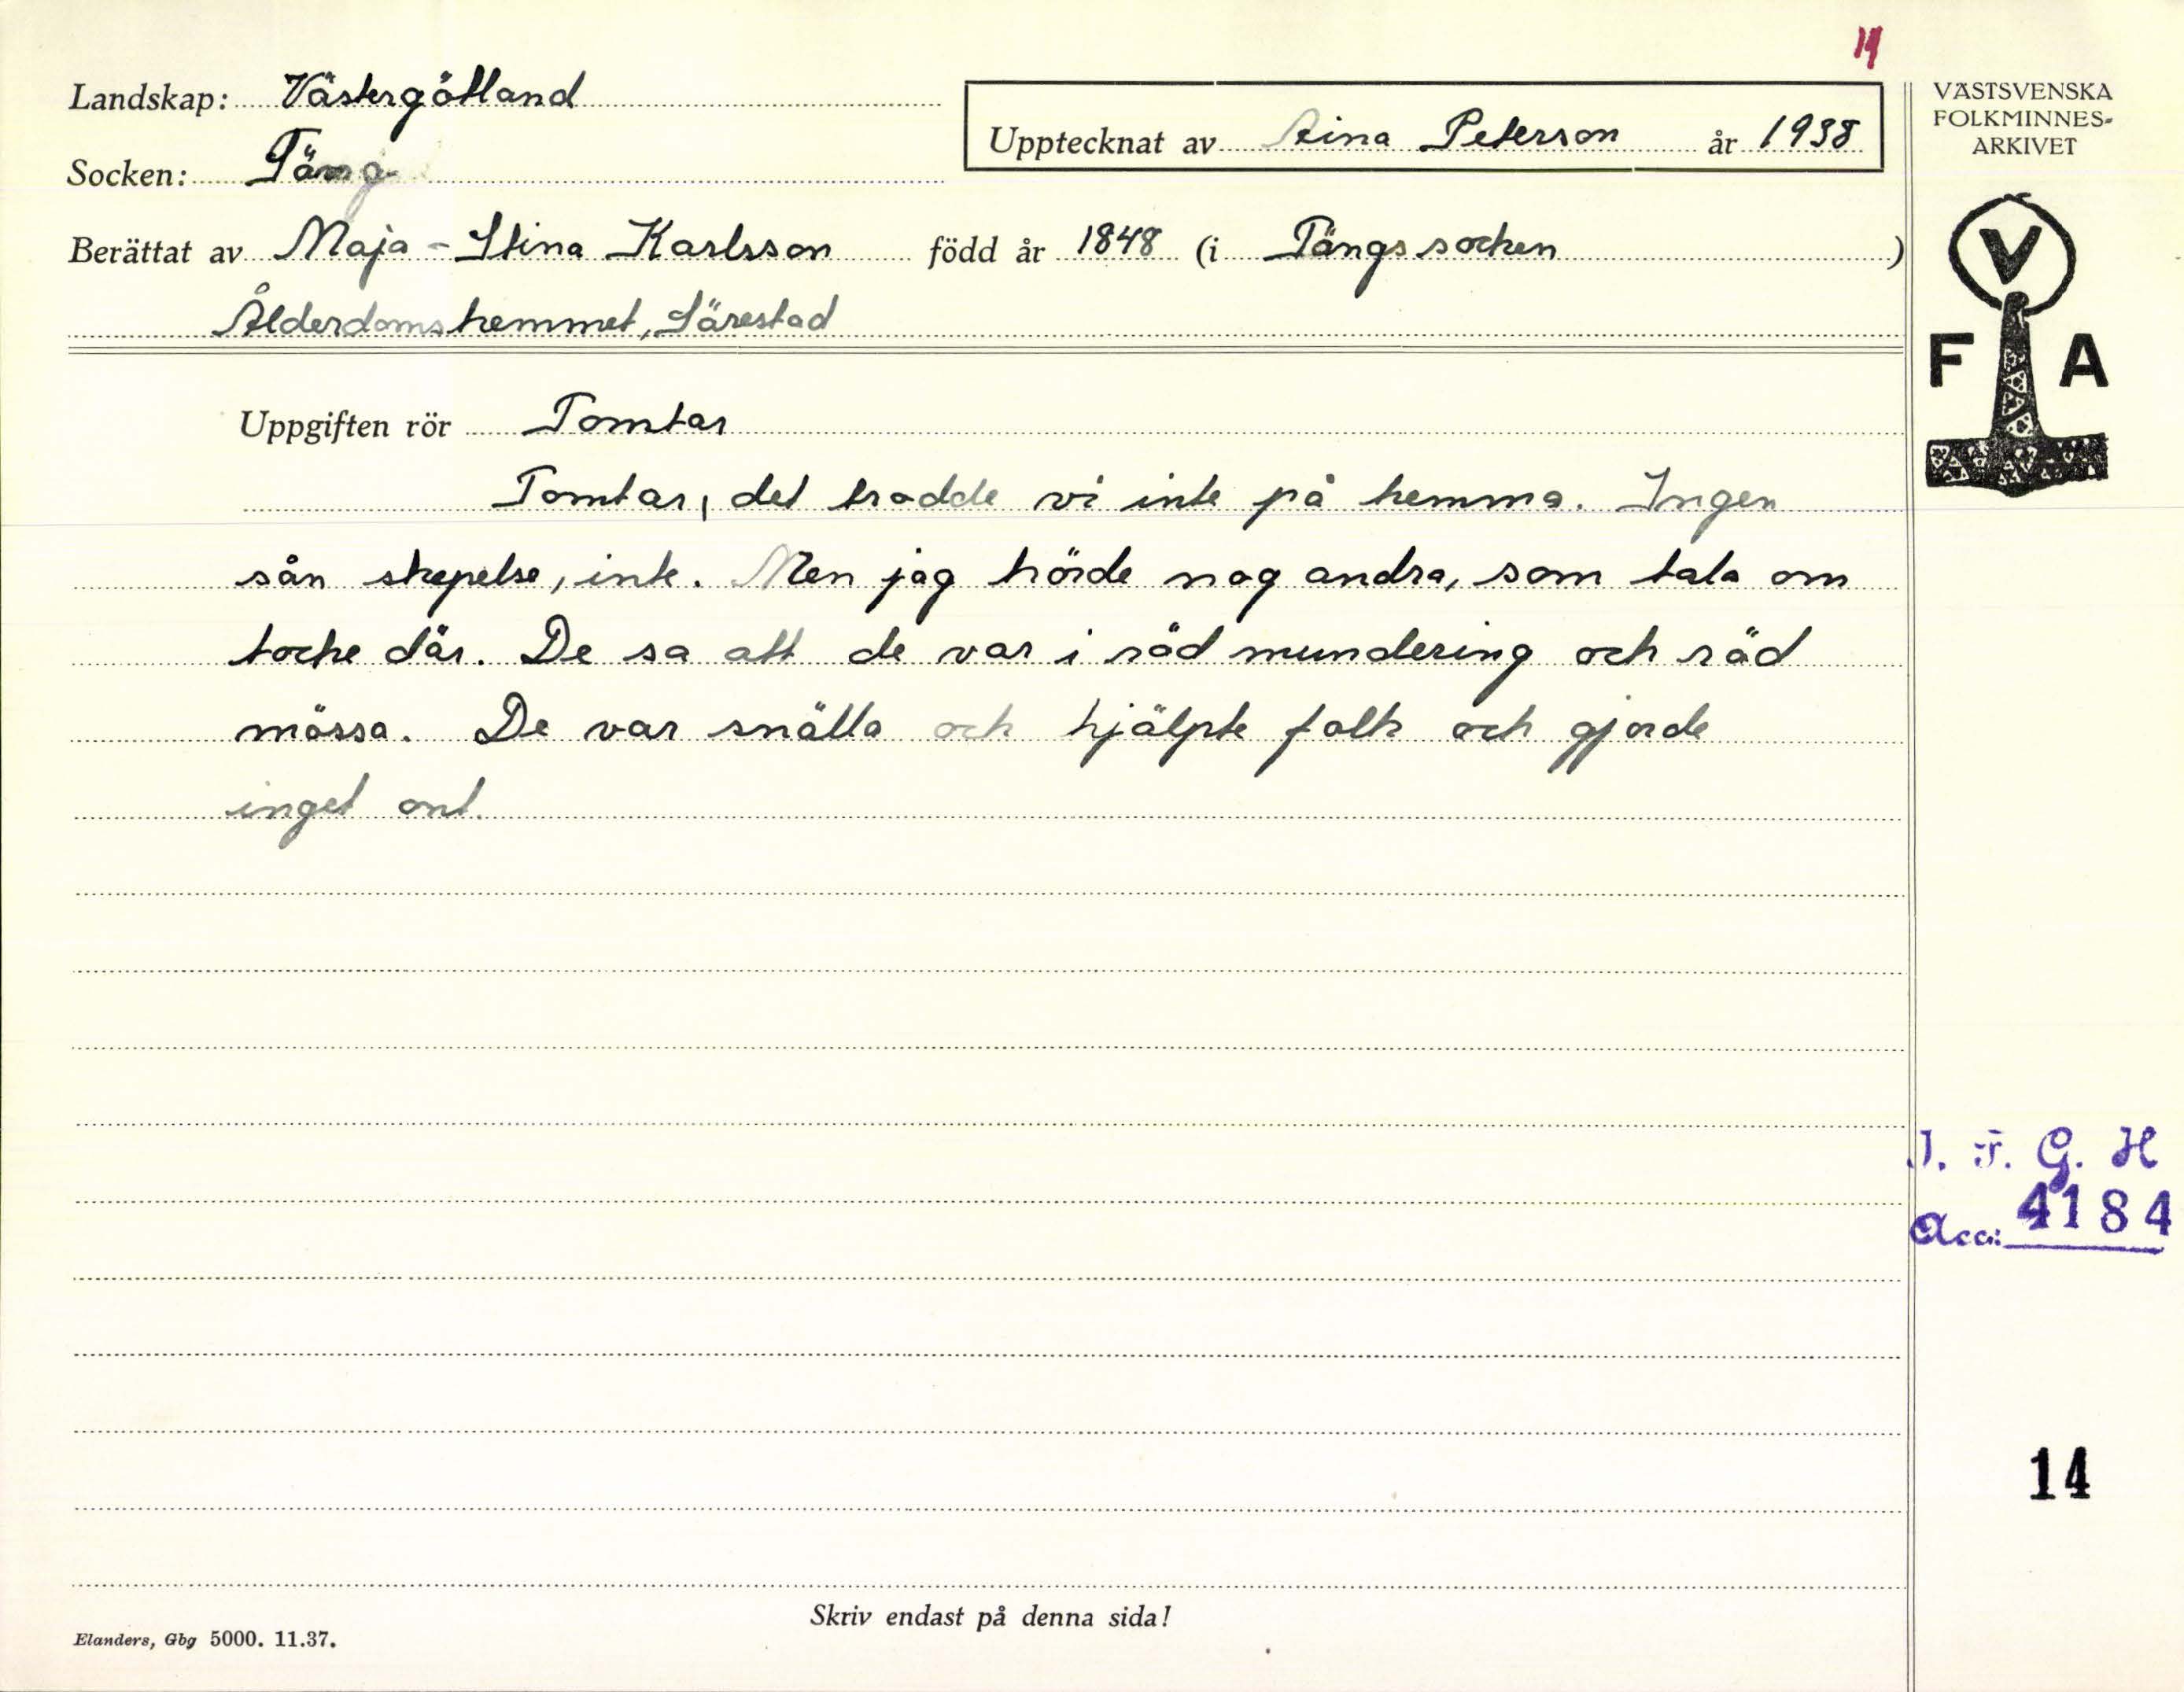 14
Landskap: Västergötland
Socken: Täng
Upptecknat av Aina Peterson år 1938
Berättat av Maja-Stina Karlsson född år 1848 (i Tängs socken)
Ålderdomshemmet, Särestad
Uppgiften rör Tomtar
Tomtar, det trodde vi inte på hemma. Ingen
sån skepelse, inte. Men jag hörde nog andra, som tala om
tocke där. De sa att de var i röd mundering och röd
mössa. De var snälla och hjälpte folk och gjorde
inget ont.
VÄSTSVENSKA
FOLKMINNES-
ARKIVET
V
F A
I. F. G. H
Acc: 4184
14
Skriv endast på denna sida!
Elanders, Gbg 5000. 11.37.